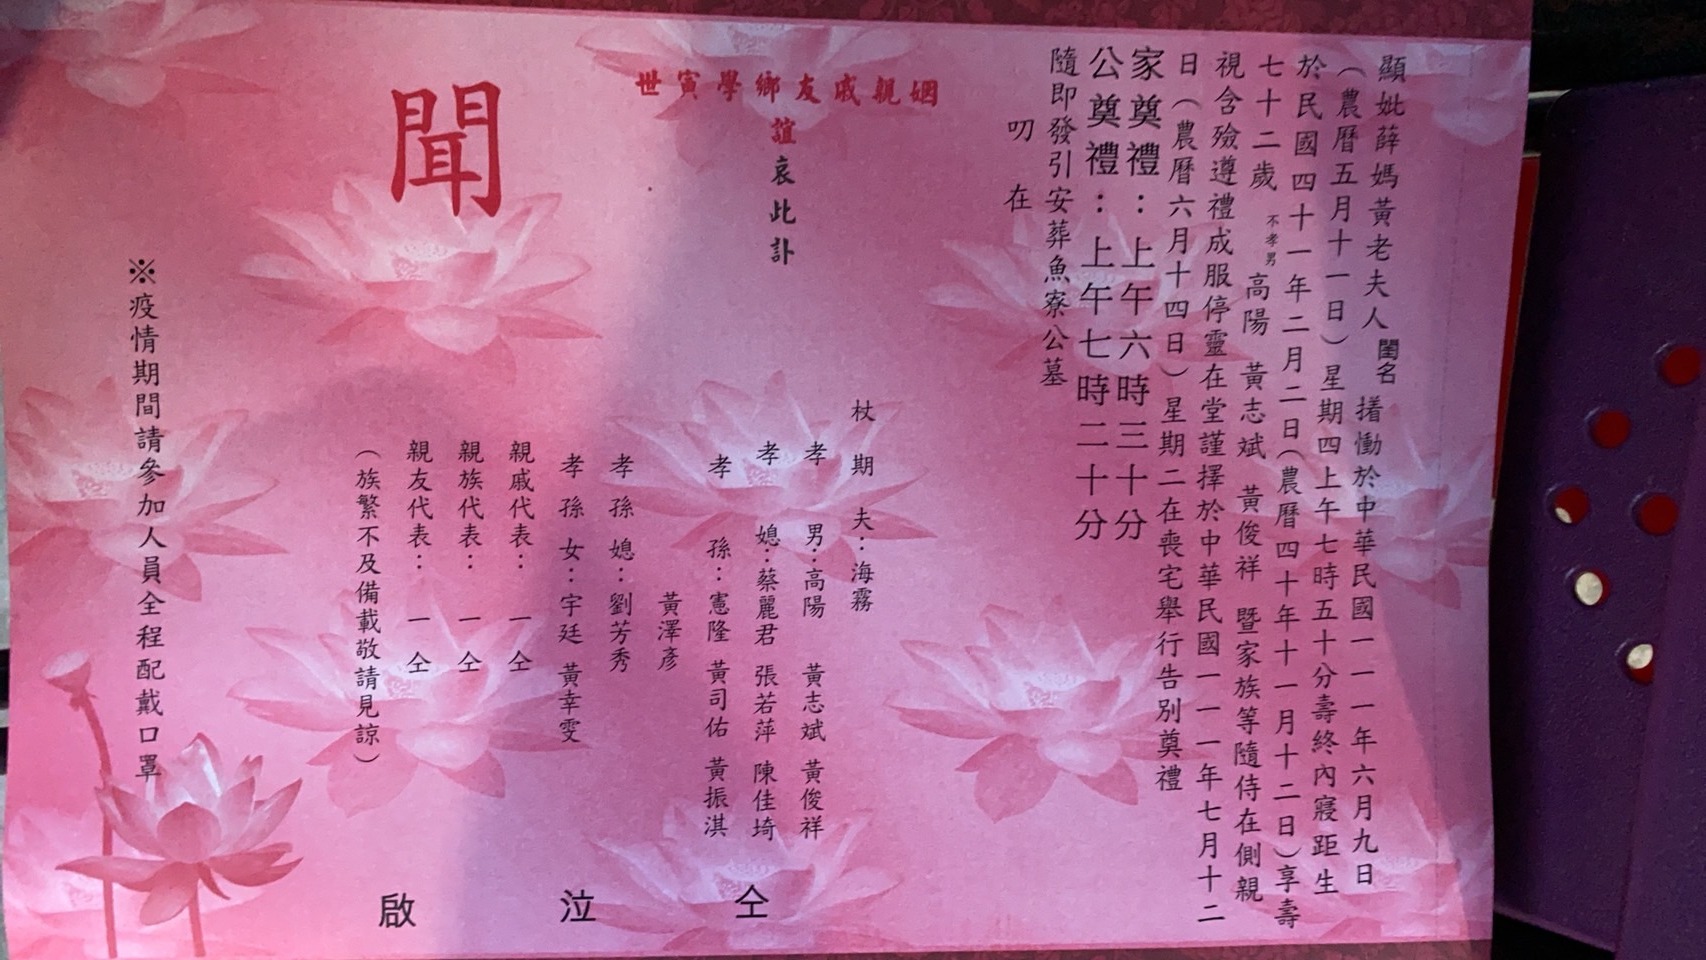 顯妣薛媽黃老夫人閨名 搘慟於中華民國一一一年六月九日
（農曆五月十一日）星期四上午七時五十分壽終內寢距生
於民國四十一年二月二日（農曆四十年十一月十二日）享壽
七十二歲 不孝男 高陽 黃志斌 黃俊祥 暨家族等隨侍在側親
視含殮遵禮成服停靈在堂謹擇於中華民國一一一年七月十二
日（農曆六月十四日）星期二在喪宅舉行告別奠禮
家奠禮：上午六時三十分
公奠禮：上午七時二十分
隨即發引安葬魚寮公墓
叨在
姻親戚友鄉學寅世
誼哀此訃
聞
杖期夫：海霧
孝男：高陽 黃志斌 黃俊祥
孝媳：蔡麗君 張若萍 陳佳埼
孝孫：憲隆 黃司佑 黃振淇
黃澤彥
孝孫媳：劉芳秀
孝孫女：宇廷 黃幸雯
親戚代表：一仝
親族代表：一仝
親友代表：一仝
（族繁不及備載敬請見諒）
仝泣啟
※疫情期間請參加人員全程配戴口罩